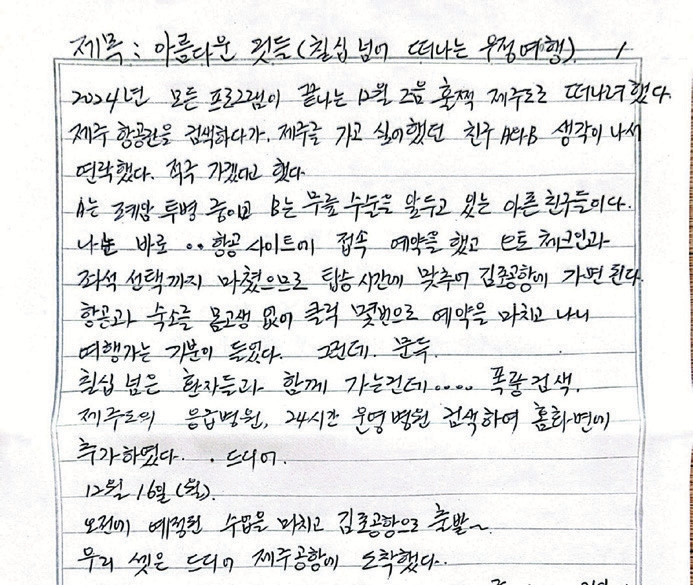 제목 : 아름다운 것들 (칠십 넘어 떠나는 우정여행) 1
2024년 모든 프로그램이 끝나는 12월 그음 훌쩍 제주도로 떠나려했다.
제주 항공권을 검색하다가, 제주를 가고 싶어했던 친구 A와B 생각이 나서
연락했다. 적극 가겠다고 했다.
A는 폐암 투병 중이고 B는 무릎 수술을 앞두고 있는 아픈친구들이다.
나는 바로 .. 항공 사이트에 접속 예약을 했고 체크인과
좌석 선택까지 마쳤으므로 탑승시간에 맞추어 김포공항에 가면 된다.
항공과 숙소를 몸고생 없이 클릭 몇번으로 예약을 마치고 나니
여행가는 기분이 들었다. 그런데. 문득.
칠십 넘은 환자들과 함께 가는건데.... 폭풍검색.
제주도의 응급병원, 24시간 운영병원 검색하여 홈화면에
추가하였다. . 드디어.
12월 16일(월).
오전에 예정된 수업을 마치고 김포공항으로 출발~
우리 셋은 드디어 제주공항에 도착했다..